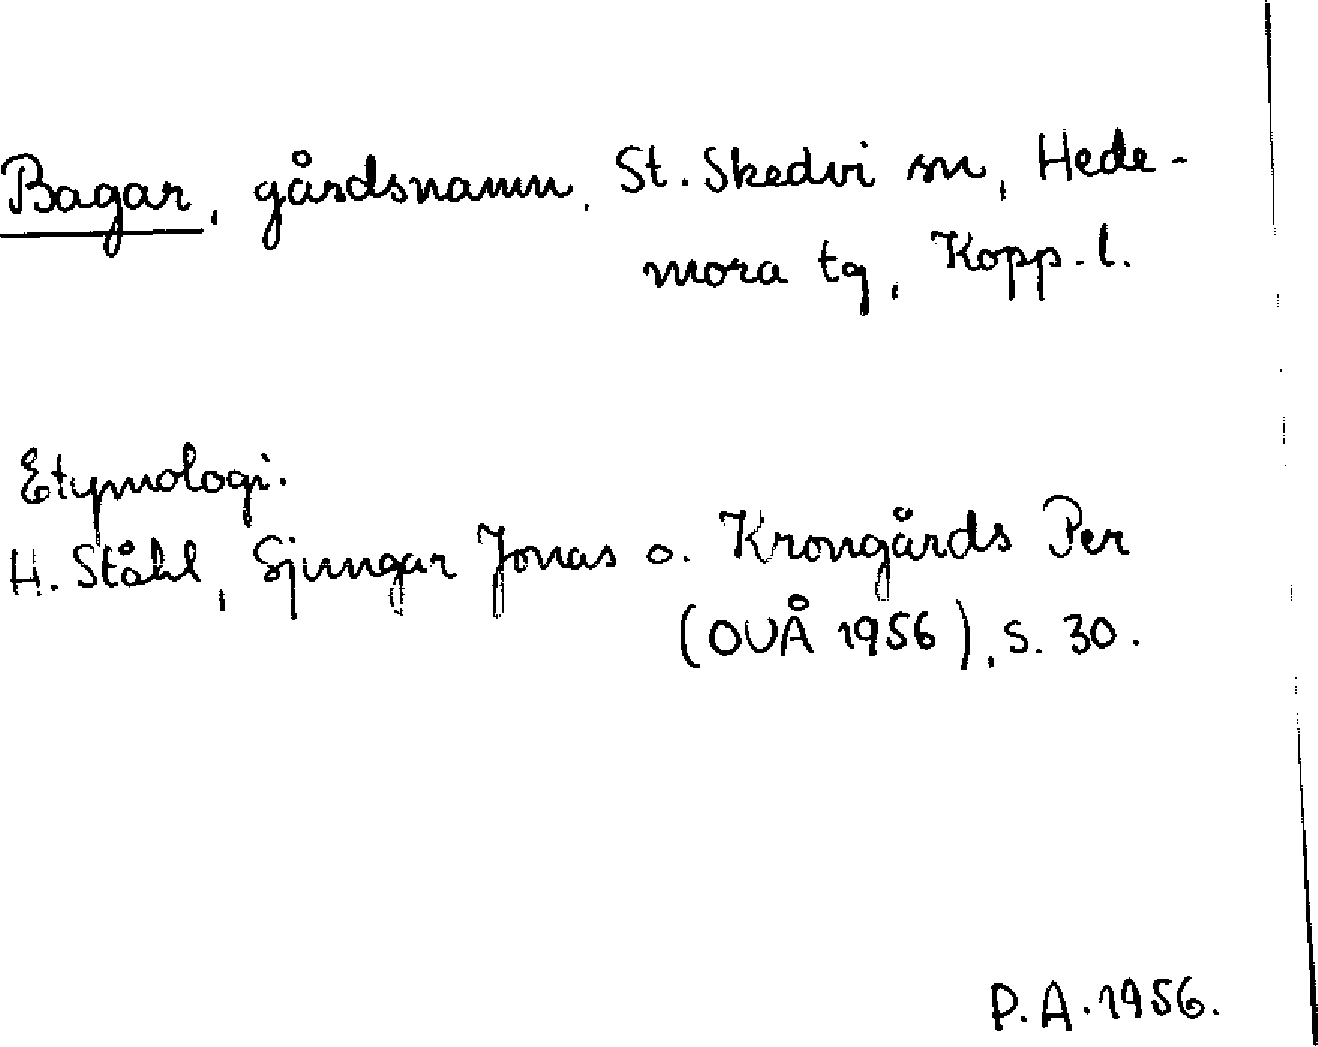 Bagar, gårdsnamn, St. Skedvi sn, Hede-
mora tg, Kopp. l.
Etymologi.
H. Ståhl, Sjungar Jonas o. Krongårds Per
(OUÅ 1956), s. 30.
P. A. 1956.